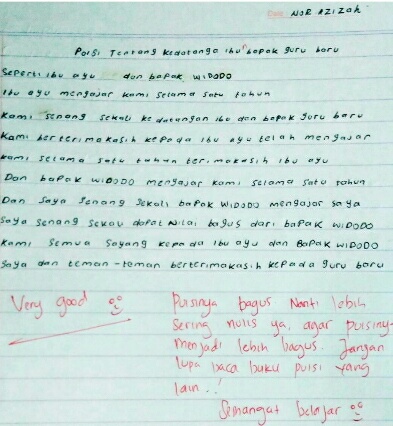 NUR AZIZah
Puisi Tentang kedatanga ibu bapak guru baru
Seperti ibu ayu dan bapak WIDODO
Ibu ayu mengajar kami selama satu tahun
Kami senang sekali kedatangan ibu dan bapak guru baru
Kami berterimakasih kepada ibu ayu telah mengajar
kami selama satu tahun terimakasih ibu ayu
Dan bapak WIDODO mengajar kami selama satu tahun
Dan saya senang sekali bapak WIDODO mengajar saya
Saya senang sekali dapat nilai bagus dari bapak WIDODO
Kami semua sayang kepada ibu ayu dan Bapak WIDODO
Saya dan teman-teman berterimakasih kepada guru baru
Very good
Puisinya bagus Nanti lebih
sering nulis ya, agar puisiny
menjadi lebih bagus. Jangan
lupa baca buku puisi yang
lain..!
Semangat belajar